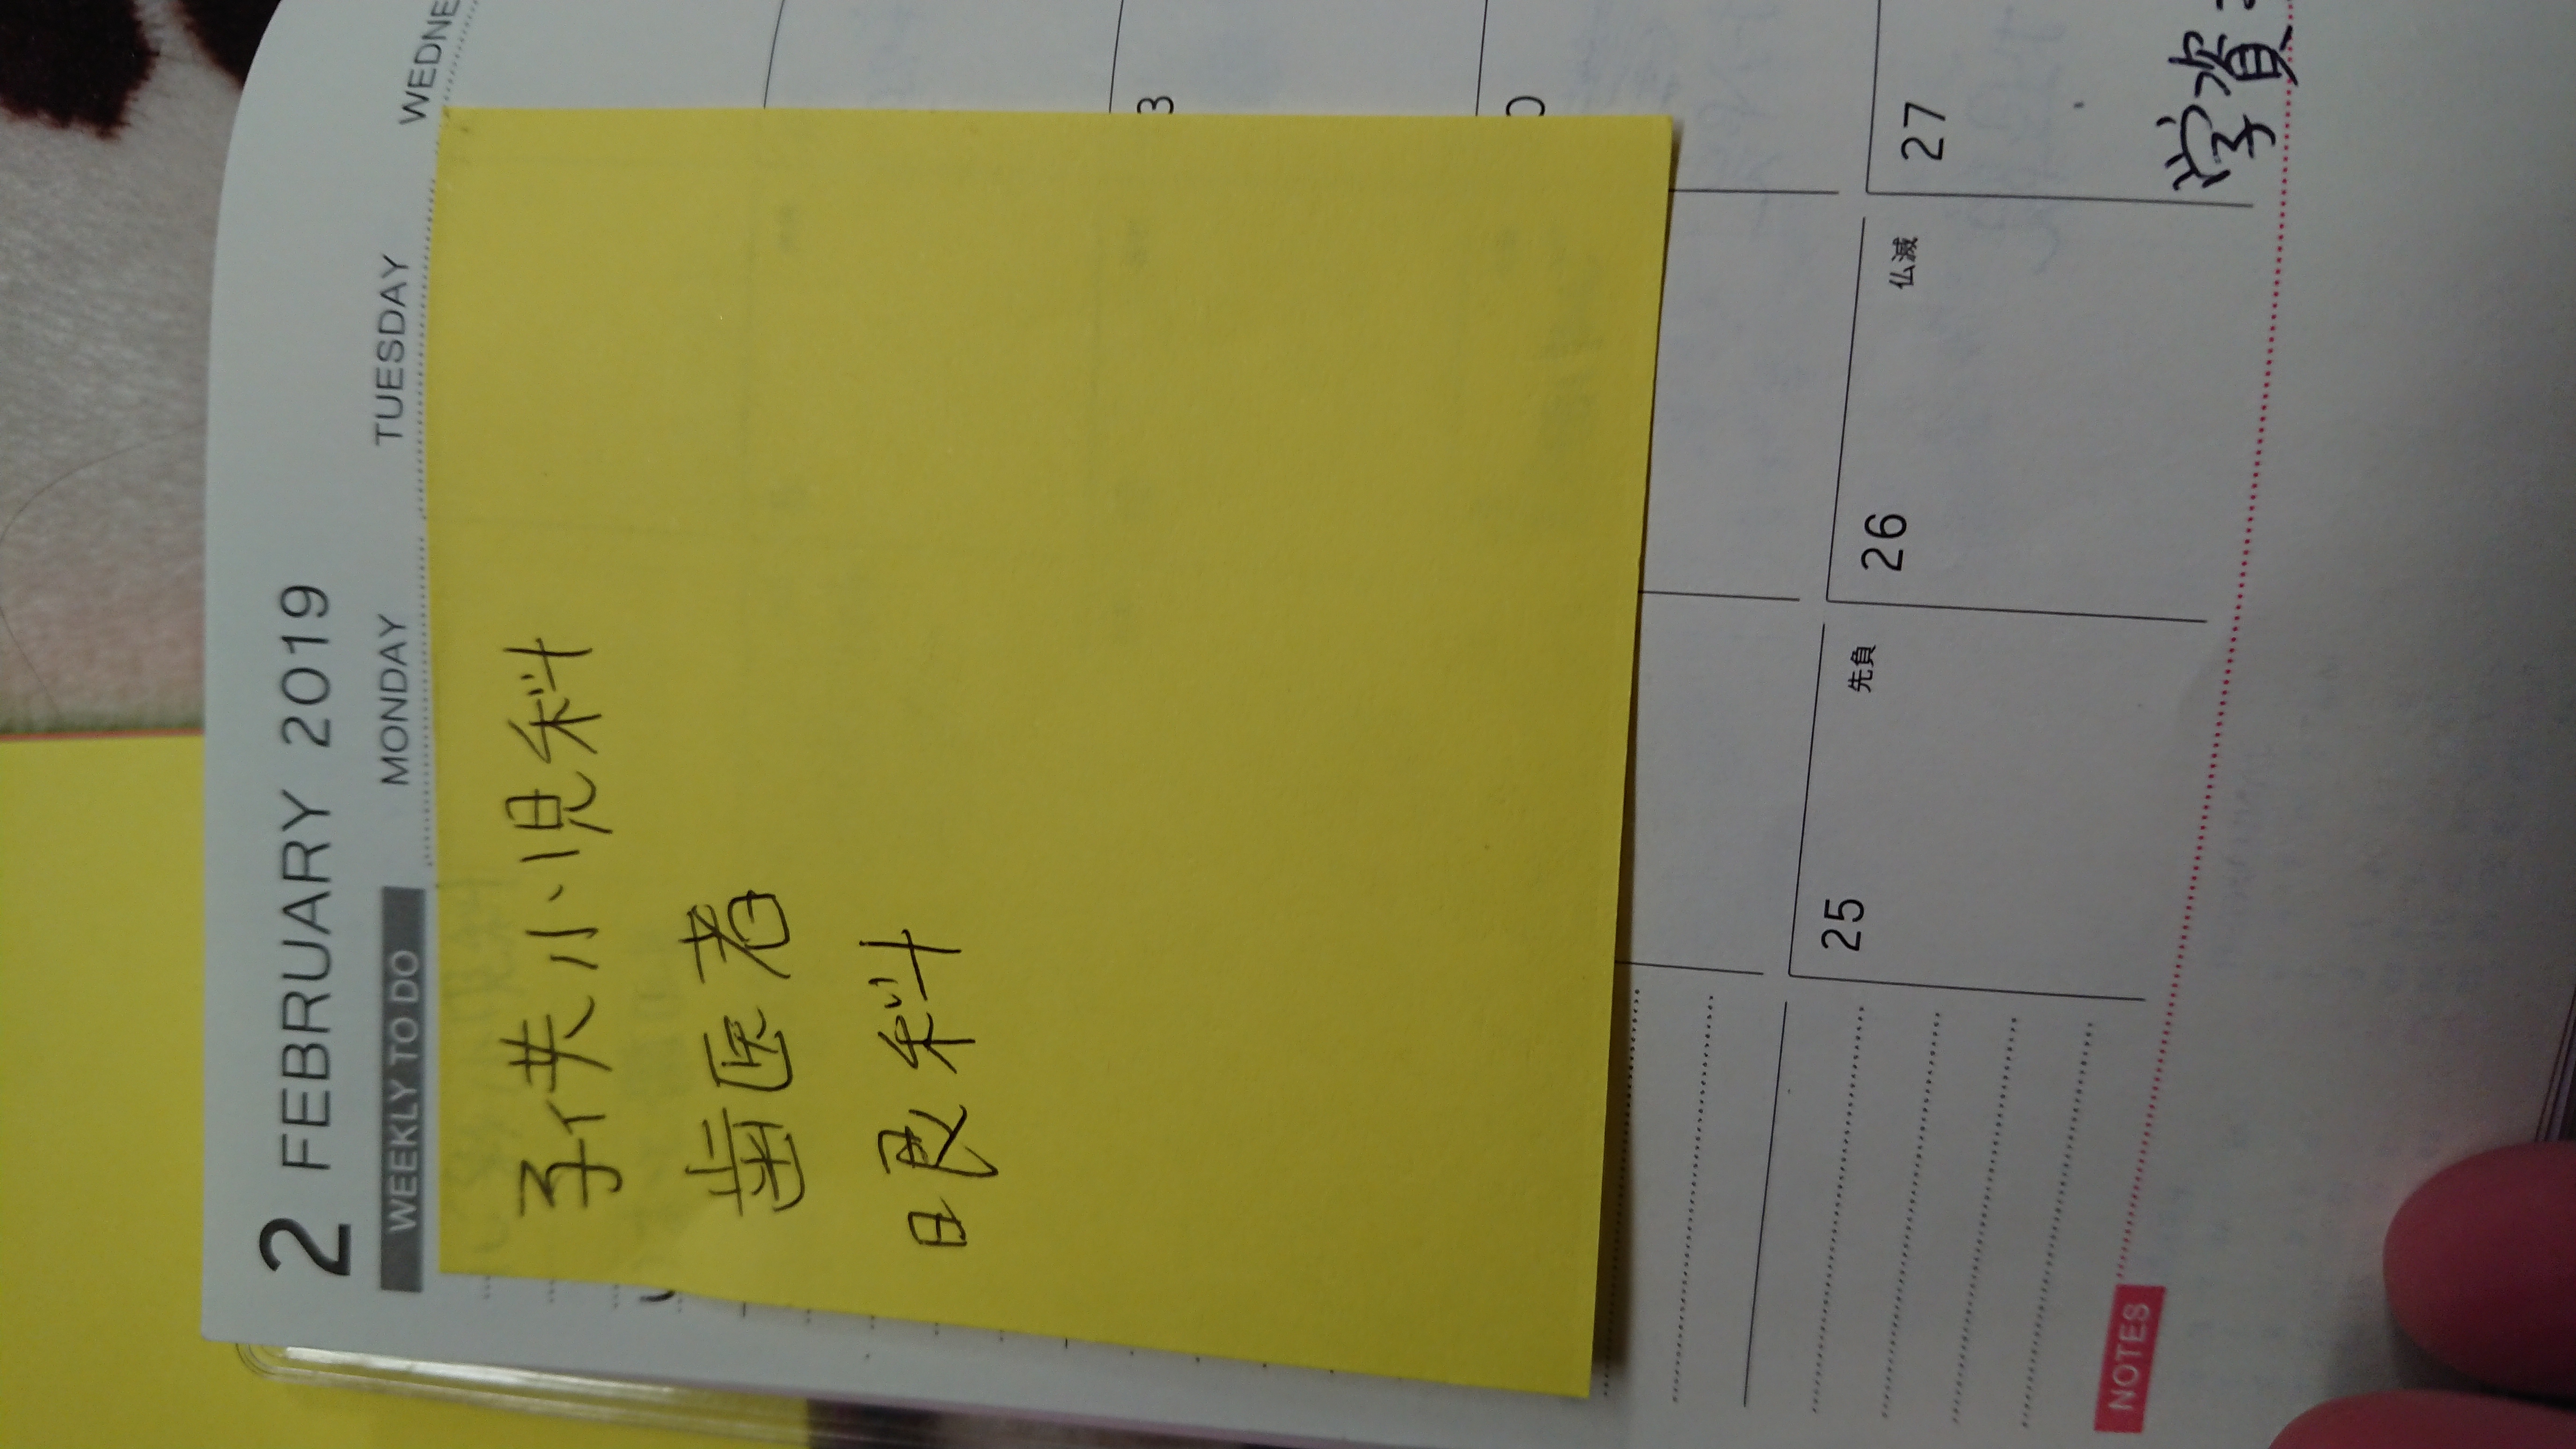 2 FEBRUARY 2019
WEEKLY TO DO MONDAY TUESDAY WEDNE
子供小児科
歯医者
眼科
3
25 先負 26 仏滅 27
学資
NOTES